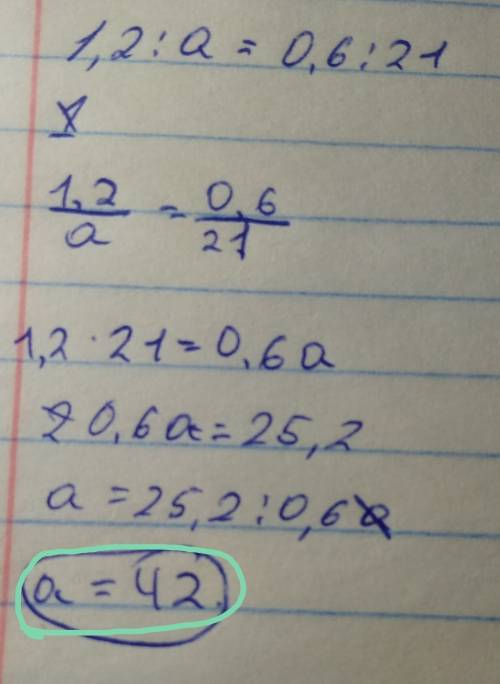 1,2 : a = 0,6 : 21
1,2/a = 0,6/21
1,2 · 21 = 0,6a
0,6a = 25,2
a = 25,2 : 0,6
a = 42